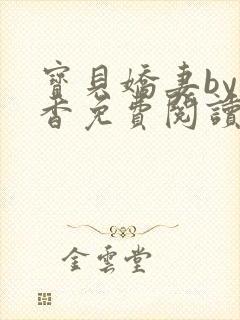 寶貝嬌妻by
香免費閱讀
金雲堂